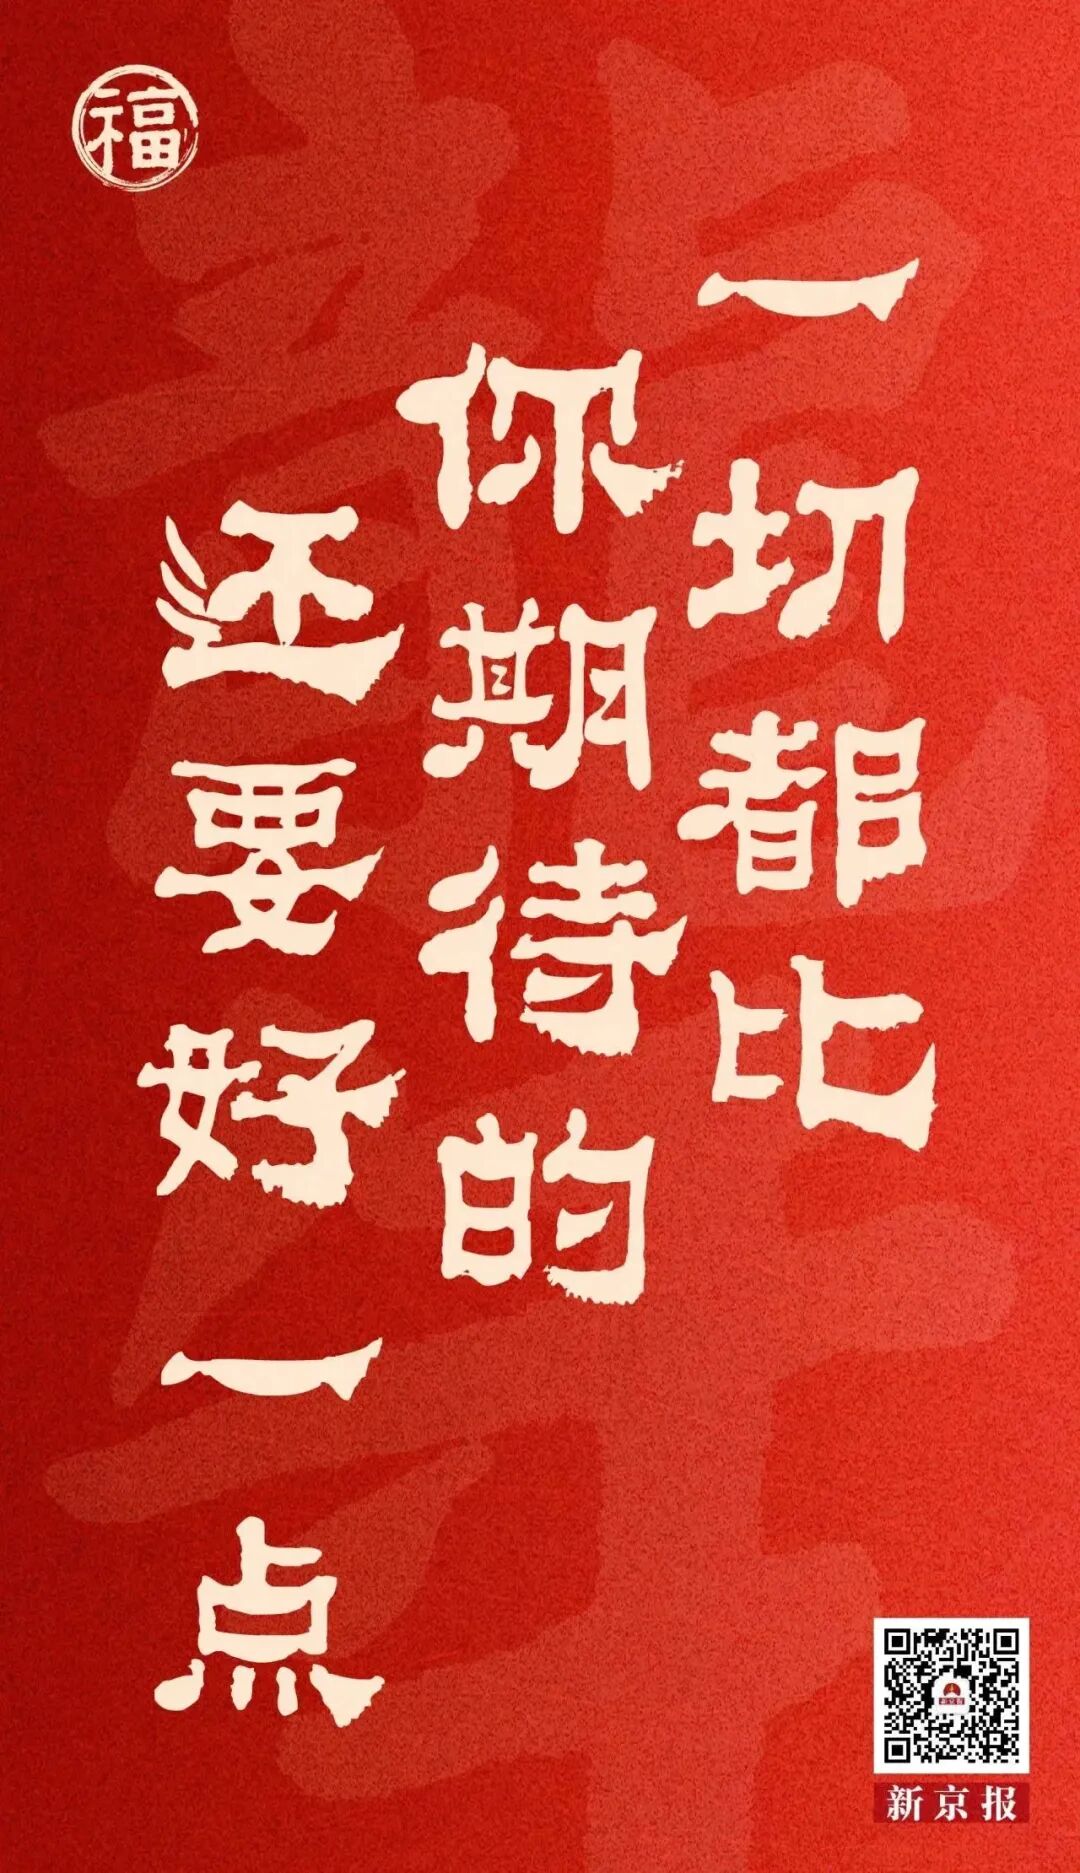 福
一切都比
你期待的
还要好一点
新京报